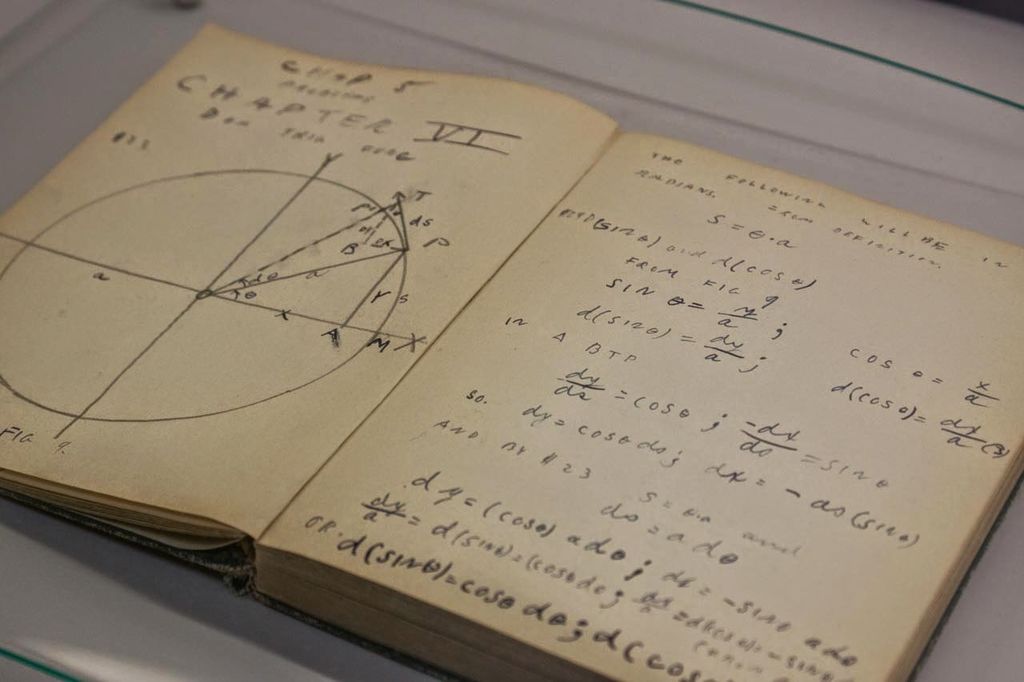 CHAP 5
PROBLEMS
CHAPTER VI
#23.
Y
T
ds
P
B
dθ
θ
a
a
Y
S
X
A
M
X
FIG 9.
THE FOLLOWING WILL BE IN
RADIANS. FROM DEFINITION.
S = θ·a
#24 D(SINθ) and d(COSθ)
FROM FIG 9
SIN θ = y/a ; COS θ = x/a
d(SINθ) = dy/a ; d(COSθ) = dx/a (3)
IN A BTP
dy/ds = COSθ ; -dx/ds = SINθ
SO. dy = COSθ ds ; dx = - ds(SINθ)
AND BY #23 S = θ·a and
ds = a dθ
dy = (COSθ) adθ ; dx = -SINθ adθ
dy/a = d(SINθ) = (COSθ dθ ; dx/a = d(COSθ) = -SINθ
OR. d(SINθ) = COSθ dθ ; d(COS